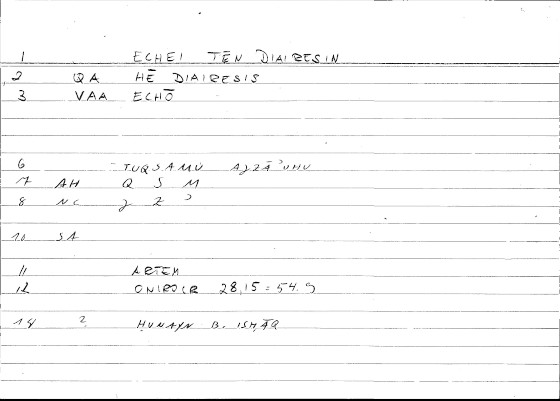 1 ECHEI TĒN DIAIRESIN
2 QA HĒ DIAIRESIS
3 VAA ECHŌ
6 -TUQSAMŪ AǧZĀʾUHU
7 AH Q S M
8 NC ǧ Z ʾ
10 SA
11 ARTEM
12 ONIROCR 28,15 = 54.9
14 ? ḤUNAYN B. ISḤĀQ